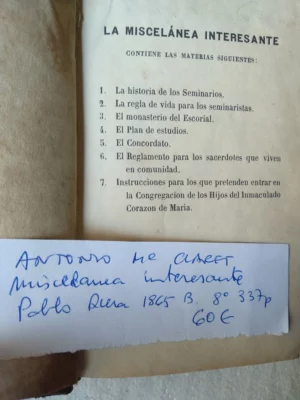 LA MISCELÁNEA INTERESANTE
CONTIENE LAS MATERIAS SIGUIENTES:
1. La historia de los Seminarios.
2. La regla de vida para los seminaristas.
3. El monasterio del Escorial.
4. El Plan de estudios.
5. El Concordato.
6. El Reglamento para los sacerdotes que viven
en comunidad.
7. Instrucciones para los que pretenden entrar en
la Congregacion de los Hijos del Inmaculado
Corazon de Maria.
ANTONIO Mª CLARET
Miscelánea interesante
Pablo Riera 1865 B. 8º 337p
60€